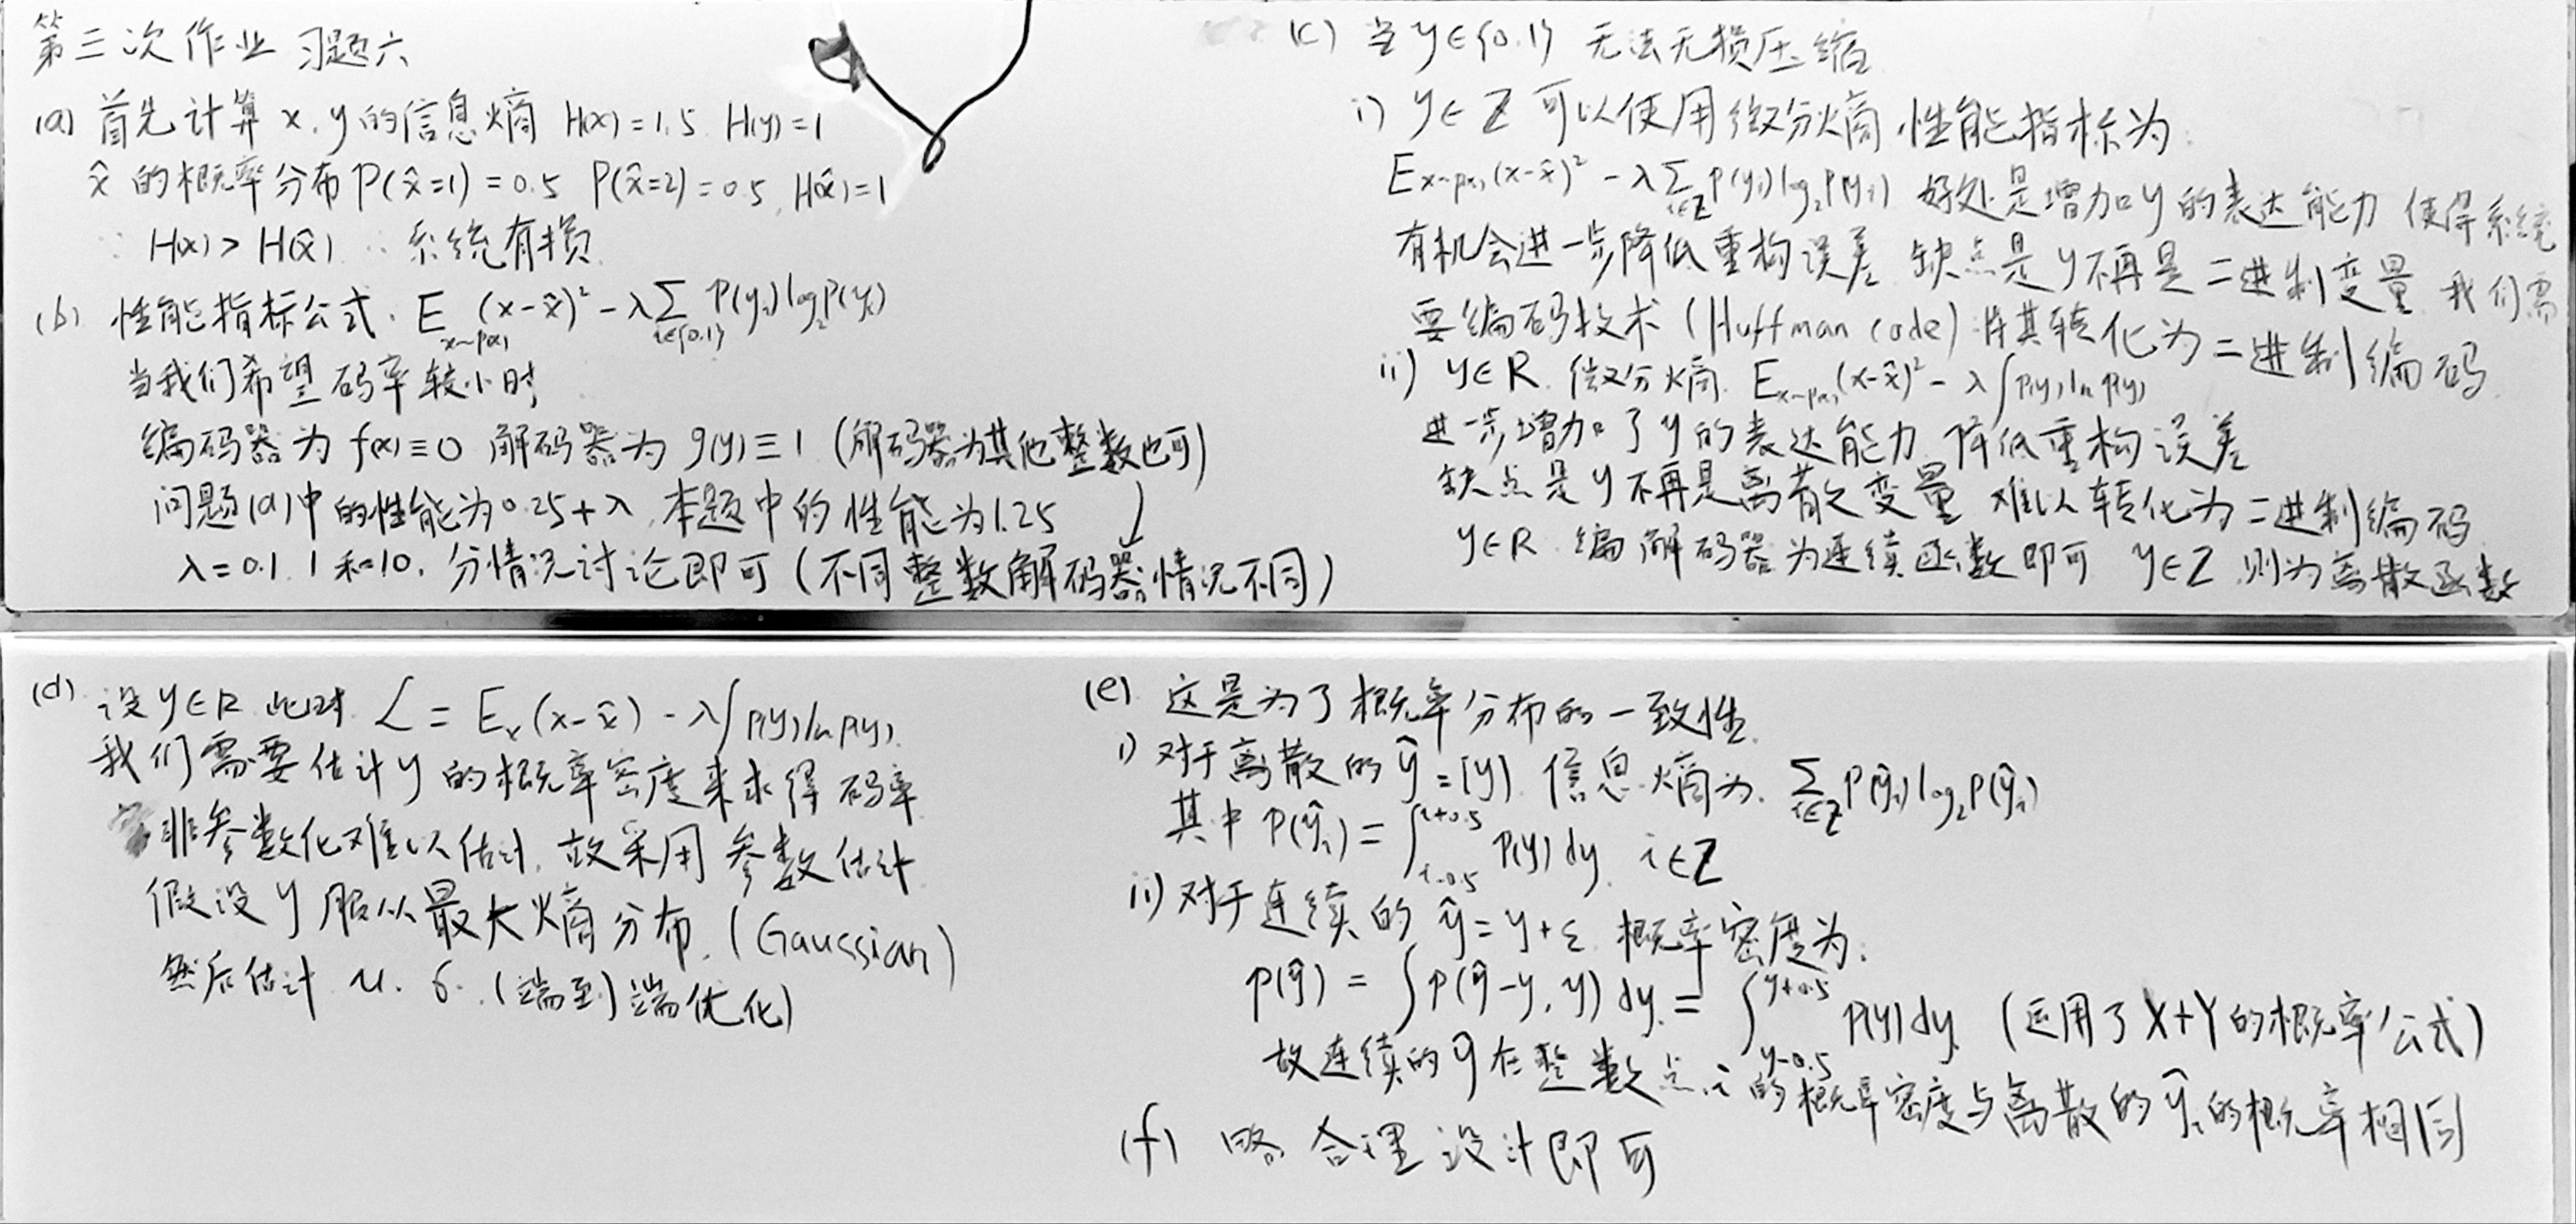 第三次作业 习题六
(a) 首先计算 x, y 的信息熵 H(x)=1.5 H(y)=1
x̂ 的概率分布 P(x̂=1)=0.5 P(x̂=2)=0.5, H(x̂)=1
∵ H(x)>H(x̂) ∴ 系统有损
(b) 性能指标公式. E_{x~p(x)} (x-x̂)² - λ∑_{i∈{0,1}} P(y_i) log₂P(y_i)
当我们希望码率较小时
编码器为 f(x)≡0 解码器为 g(y)≡1 (解码器为其他整数也可)
问题(a)中的性能为0.25+λ, 本题中的性能为1.25
λ=0.1, 1和10, 分情况讨论即可 (不同整数解码器情况不同)
(c) 当 y∈{0,1} 无法无损压缩
i) y∈Z 可以使用微分熵, 性能指标为:
E_{x~p(x)} (x-x̂)² - λ∑_{i∈Z} P(y_i) log₂P(y_i) 好处是增加y的表达能力 使得系统
有机会进一步降低重构误差 缺点是y不再是二进制变量 我们需
要编码技术 (Huffman code) 将其转化为二进制编码
ii) y∈R. 微分熵. E_{x~p(x)} (x-x̂)² - λ∫p(y) ln p(y)
进一步增加了y的表达能力, 降低重构误差
缺点是y不再是离散变量 难以转化为二进制编码
y∈R. 编解码器为连续函数即可 y∈Z, 则为离散函数
(d) 设y∈R 此时 L = E_x (x-x̂) - λ∫p(y) ln p(y)
我们需要估计y的概率密度来求得码率
非参数化难以估计, 故采用参数估计
假设y服从最大熵分布. (Gaussian)
然后估计 u. σ. (端到端优化)
(e) 这是为了概率分布的一致性
i) 对于离散的 ŷ=[y] 信息熵为. ∑_{i∈Z} P(ŷ_i) log₂P(ŷ_i)
其中 P(ŷ_i) = ∫_{i-0.5}^{i+0.5} P(y) dy, i∈Z
ii) 对于连续的 ŷ=y+ε 概率密度为:
p(ŷ) = ∫p(ŷ-y, y) dy = ∫_{y-0.5}^{y+0.5} P(y) dy (运用了X+Y的概率公式)
故连续的 ŷ 在整数点 i 的概率密度与离散的 ŷ_i 的概率相同
(f) 略 合理设计即可